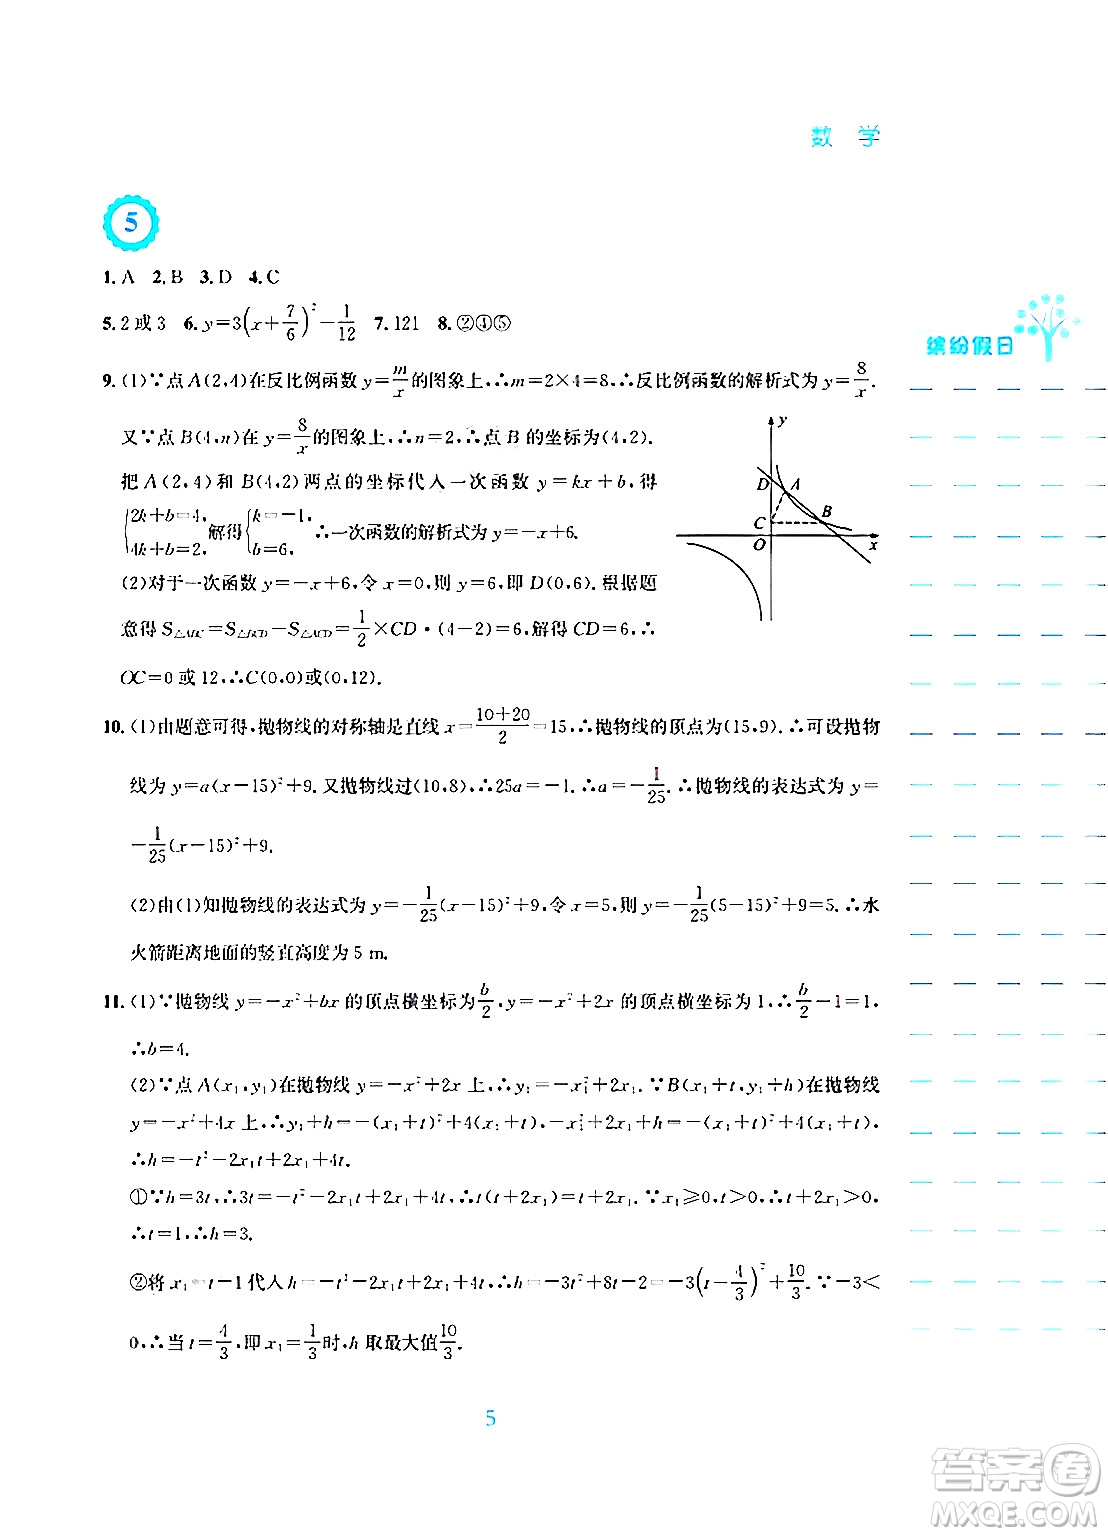 数 学
5
1. A 2. B 3. D 4. C
5. 2 或 3 6. y=3(x+7/6)²-1/12 7. 121 8. ②④⑤
缤纷假日
9. (1)∵点 A(2,4)在反比例函数 y=m/x的图象上,∴m=2×4=8,∴反比例函数的解析式为 y=8/x.
又∵点 B(4,n)在 y=8/x的图象上,∴n=2,∴点 B 的坐标为(4,2).
把 A(2,4) 和 B(4,2) 两点的坐标代入一次函数 y=kx+b,得
{2k+b=4, 4k+b=2, 解得{k=-1, b=6, ∴一次函数的解析式为 y=-x+6.
(2)对于一次函数 y=-x+6,令 x=0,则 y=6,即 D(0,6). 根据题
意得 S△ABC=S△BCD-S△ACD=1/2×CD·(4-2)=6,解得 CD=6,∴
OC=0 或 12,∴C(0,0)或(0,12).
y
D A
C B
O x
10. (1)由题意可得,抛物线的对称轴是直线 x=(10+20)/2=15,∴抛物线的顶点为(15,9).∴可设抛物
线为 y=a(x-15)²+9. 又抛物线过(10,8),∴25a=-1.∴a=-1/25.∴抛物线的表达式为 y=
-1/25(x-15)²+9.
(2)由(1)知抛物线的表达式为 y=-1/25(x-15)²+9,令 x=5,则 y=-1/25(5-15)²+9=5.∴水
火箭距离地面的竖直高度为 5 m.
11. (1)∵抛物线 y=-x²+bx 的顶点横坐标为b/2,y=-x²+2x 的顶点横坐标为 1,∴b/2-1=1,
∴b=4.
(2)∵点 A(x₁,y₁)在抛物线 y=-x²+2x 上,∴y₁=-x₁²+2x₁.∵B(x₁+t,y₁+h)在抛物线
y=-x²+4x 上,∴y₁+h=-(x₁+t)²+4(x₁+t),-x₁²+2x₁+h=-(x₁+t)²+4(x₁+t),
∴h=-t²-2x₁t+2x₁+4t.
①∵h=3t,∴3t=-t²-2x₁t+2x₁+4t,∴t(t+2x₁)=t+2x₁.∵x₁≥0,t>0,∴t+2x₁>0,
∴t=1,∴h=3.
②将 x₁=t-1代入 h=-t²-2x₁t+2x₁+4t,∴h=-3t²+8t-2=-3(t-4/3)²+10/3.∵-3<
0,∴当 t=4/3,即 x₁=1/3时,h 取最大值10/3.
5
答案圈
MXQE.COM